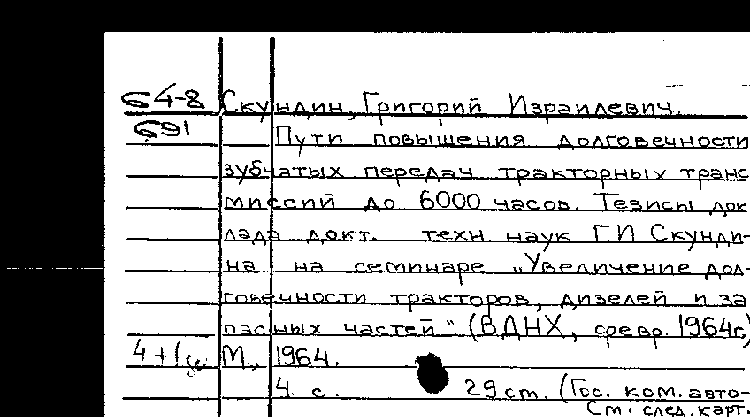 64-8 Скундин, Григорий Израилевич.
691 Пути повышения долговечности
зубчатых передач тракторных транс
миссий до 6000 часов. Тезисы док
лада докт. техн. наук Г.И Скунди-
на на семинаре „Увеличение дол-
говечности тракторов, дизелей и за
пасных частей" (ВДНХ, февр. 1964г)
М., 1964.
4 с. 29 см. (Гос. ком. авто-
См. след. карт.